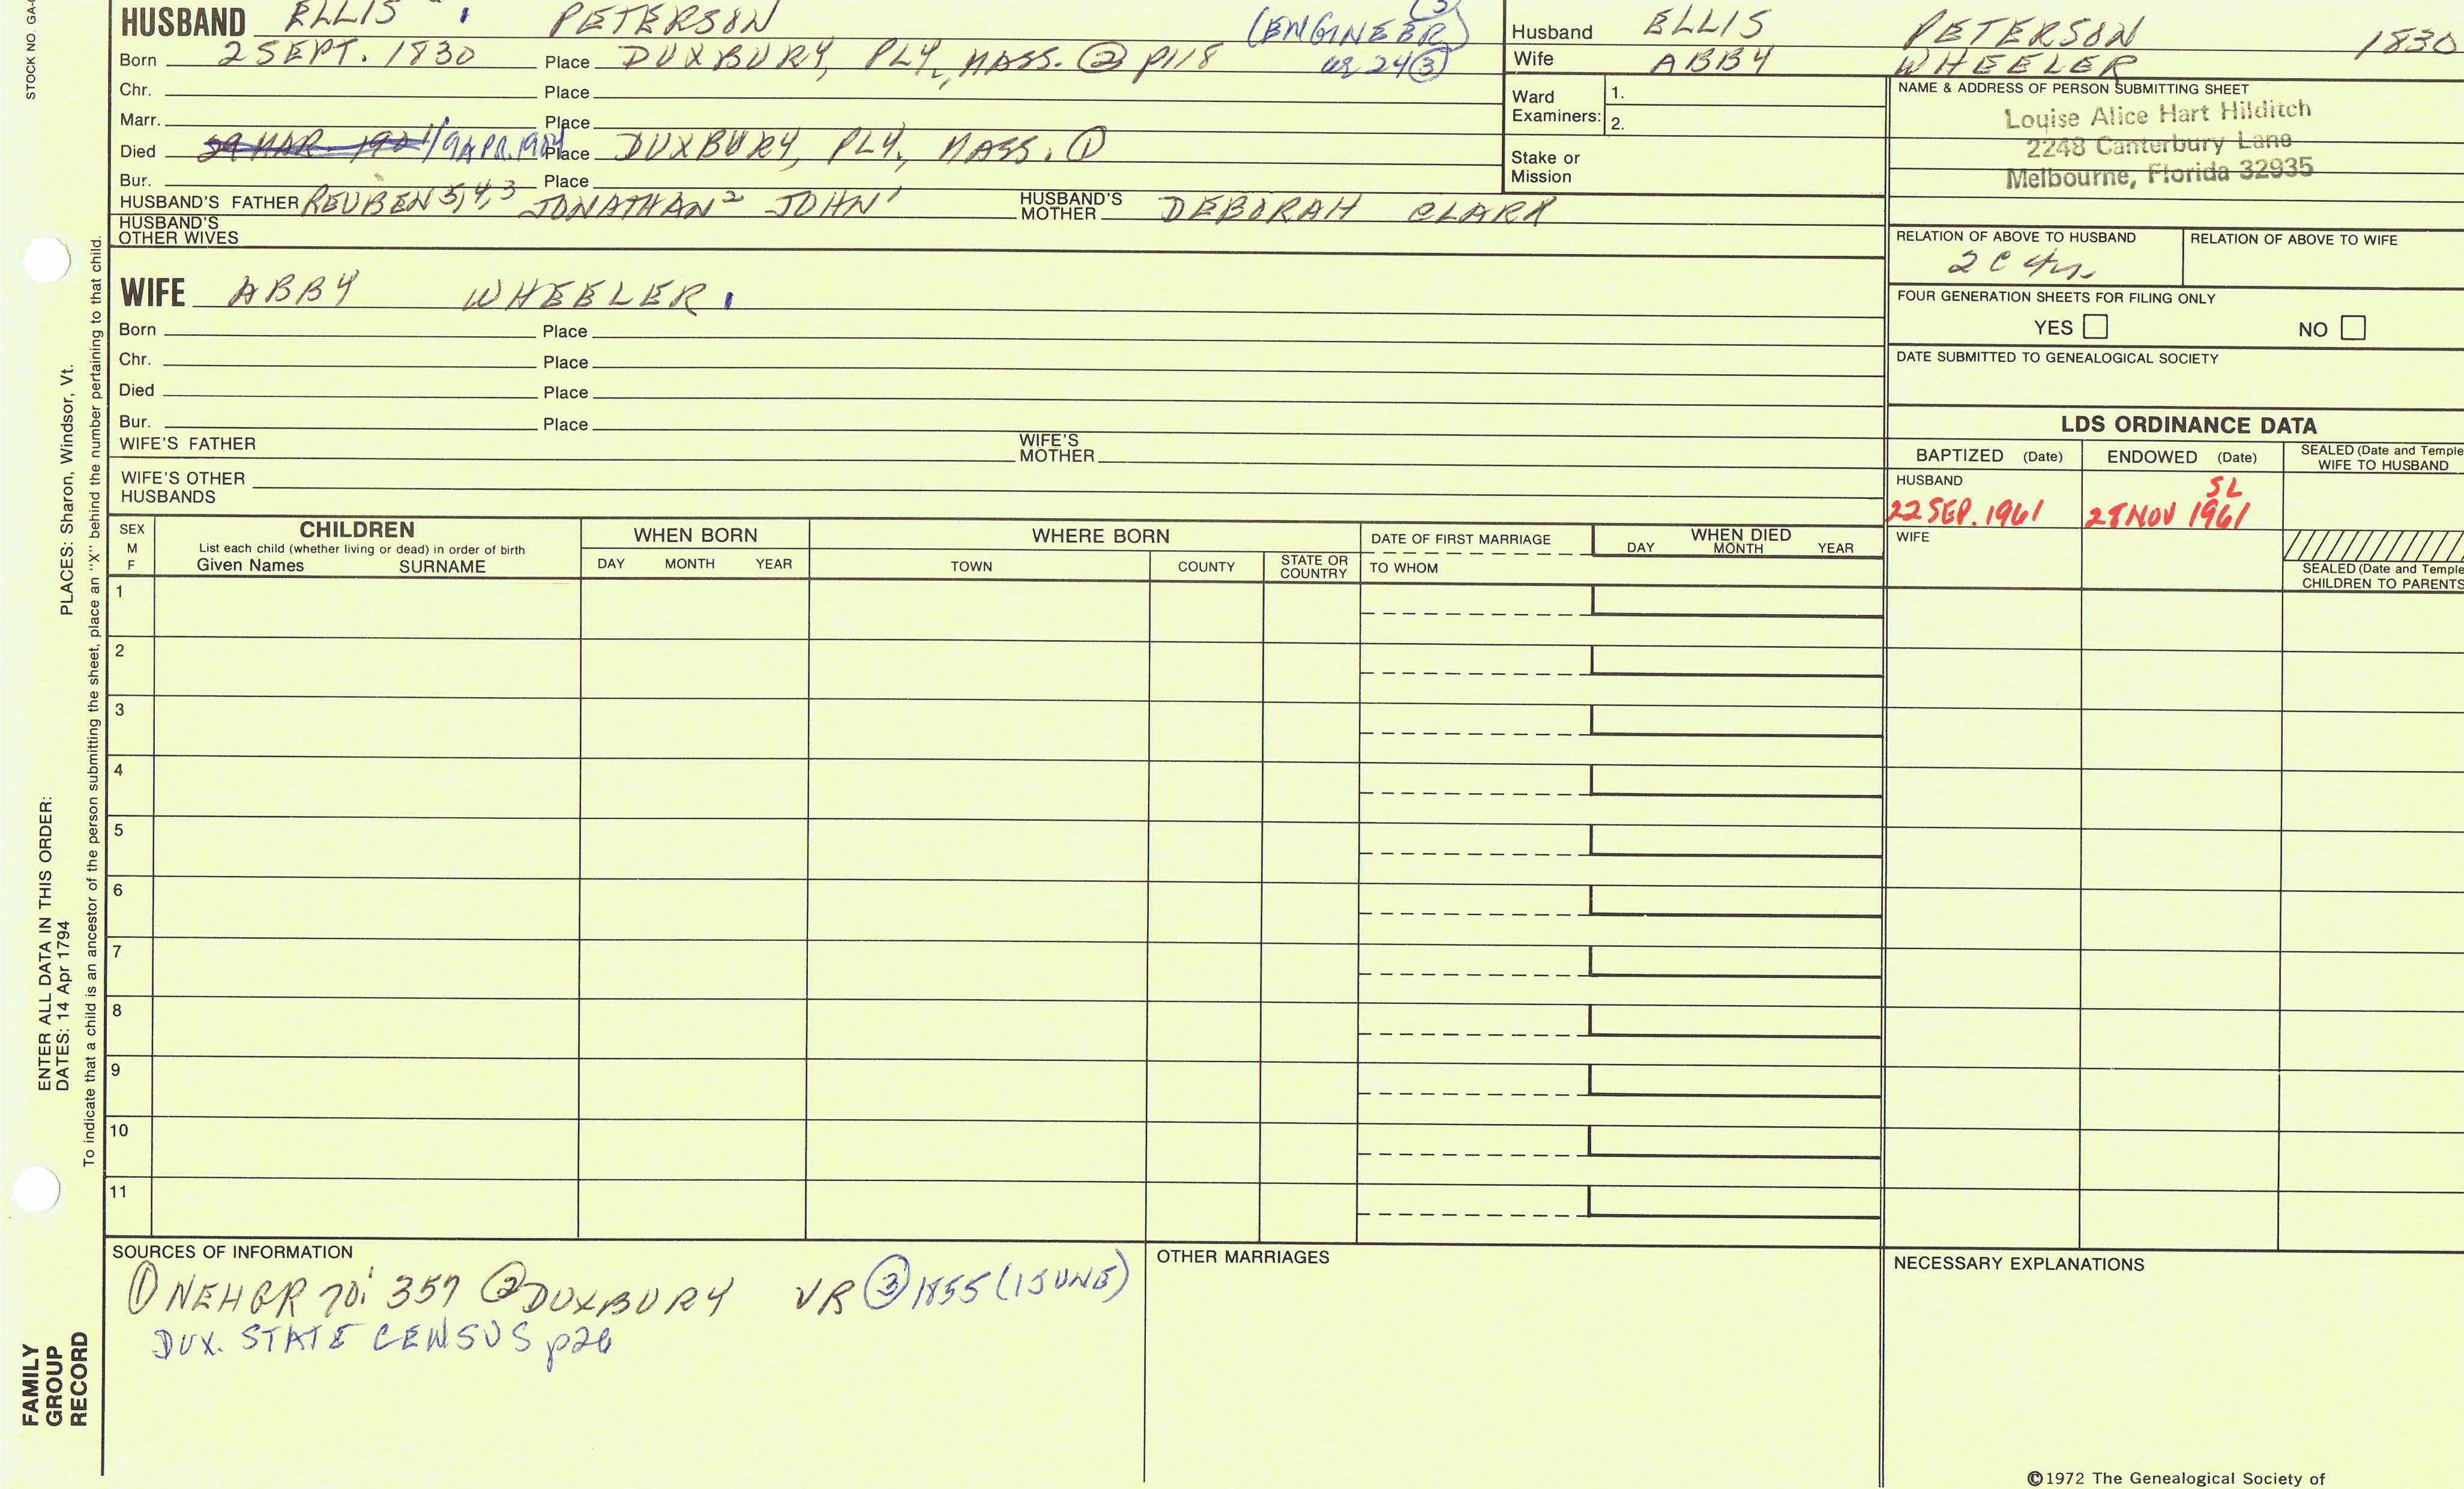 STOCK NO. GA-
HUSBAND ELLIS PETERSON (ENGINEER)
Born 2 SEPT. 1830 Place DUXBURY, PLY, MASS. ② p118 ae 24 ③
Chr. Place
Marr. Place
Died 29 MAR. 19APR.1904 Place DUXBURY, PLY, MASS. ①
Bur. Place
HUSBAND'S FATHER REUBEN 5,4,3 JONATHAN 2 JOHN 1 HUSBAND'S MOTHER DEBORAH CLARK
HUSBAND'S OTHER WIVES
WIFE ABBY WHEELER
Born Place
Chr. Place
Died Place
Bur. Place
WIFE'S FATHER WIFE'S MOTHER
WIFE'S OTHER HUSBANDS
Husband ELLIS PETERSON 1830
Wife ABBY WHEELER
Ward Examiners: 1.
2.
Stake or Mission
NAME & ADDRESS OF PERSON SUBMITTING SHEET
Louise Alice Hart Hilditch
2248 Canterbury Lane
Melbourne, Florida 32935
RELATION OF ABOVE TO HUSBAND RELATION OF ABOVE TO WIFE
2C 4r
FOUR GENERATION SHEETS FOR FILING ONLY
YES NO
DATE SUBMITTED TO GENEALOGICAL SOCIETY
LDS ORDINANCE DATA
BAPTIZED (Date) ENDOWED (Date) SEALED (Date and Temple
WIFE TO HUSBAND
HUSBAND
22 SEP. 1961 28 NOV 1961 SL
WIFE
SEALED (Date and Temple
CHILDREN TO PARENTS
SEX M F CHILDREN WHEN BORN WHERE BORN DATE OF FIRST MARRIAGE WHEN DIED
List each child (whether living or dead) in order of birth
Given Names SURNAME DAY MONTH YEAR TOWN COUNTY STATE OR COUNTRY TO WHOM DAY MONTH YEAR
1
2
3
4
5
6
7
8
9
10
11
SOURCES OF INFORMATION
① NEHGR 70:357 ② DUXBURY VR ③ 1855 (1 JUNE)
DUX. STATE CENSUS p26
OTHER MARRIAGES
NECESSARY EXPLANATIONS
©1972 The Genealogical Society of
ENTER ALL DATA IN THIS ORDER:
DATES: 14 Apr 1794 PLACES: Sharon, Windsor, Vt.
To indicate that a child is an ancestor of the person submitting the sheet, place an "X" behind the number pertaining to that child.
FAMILY
GROUP
RECORD